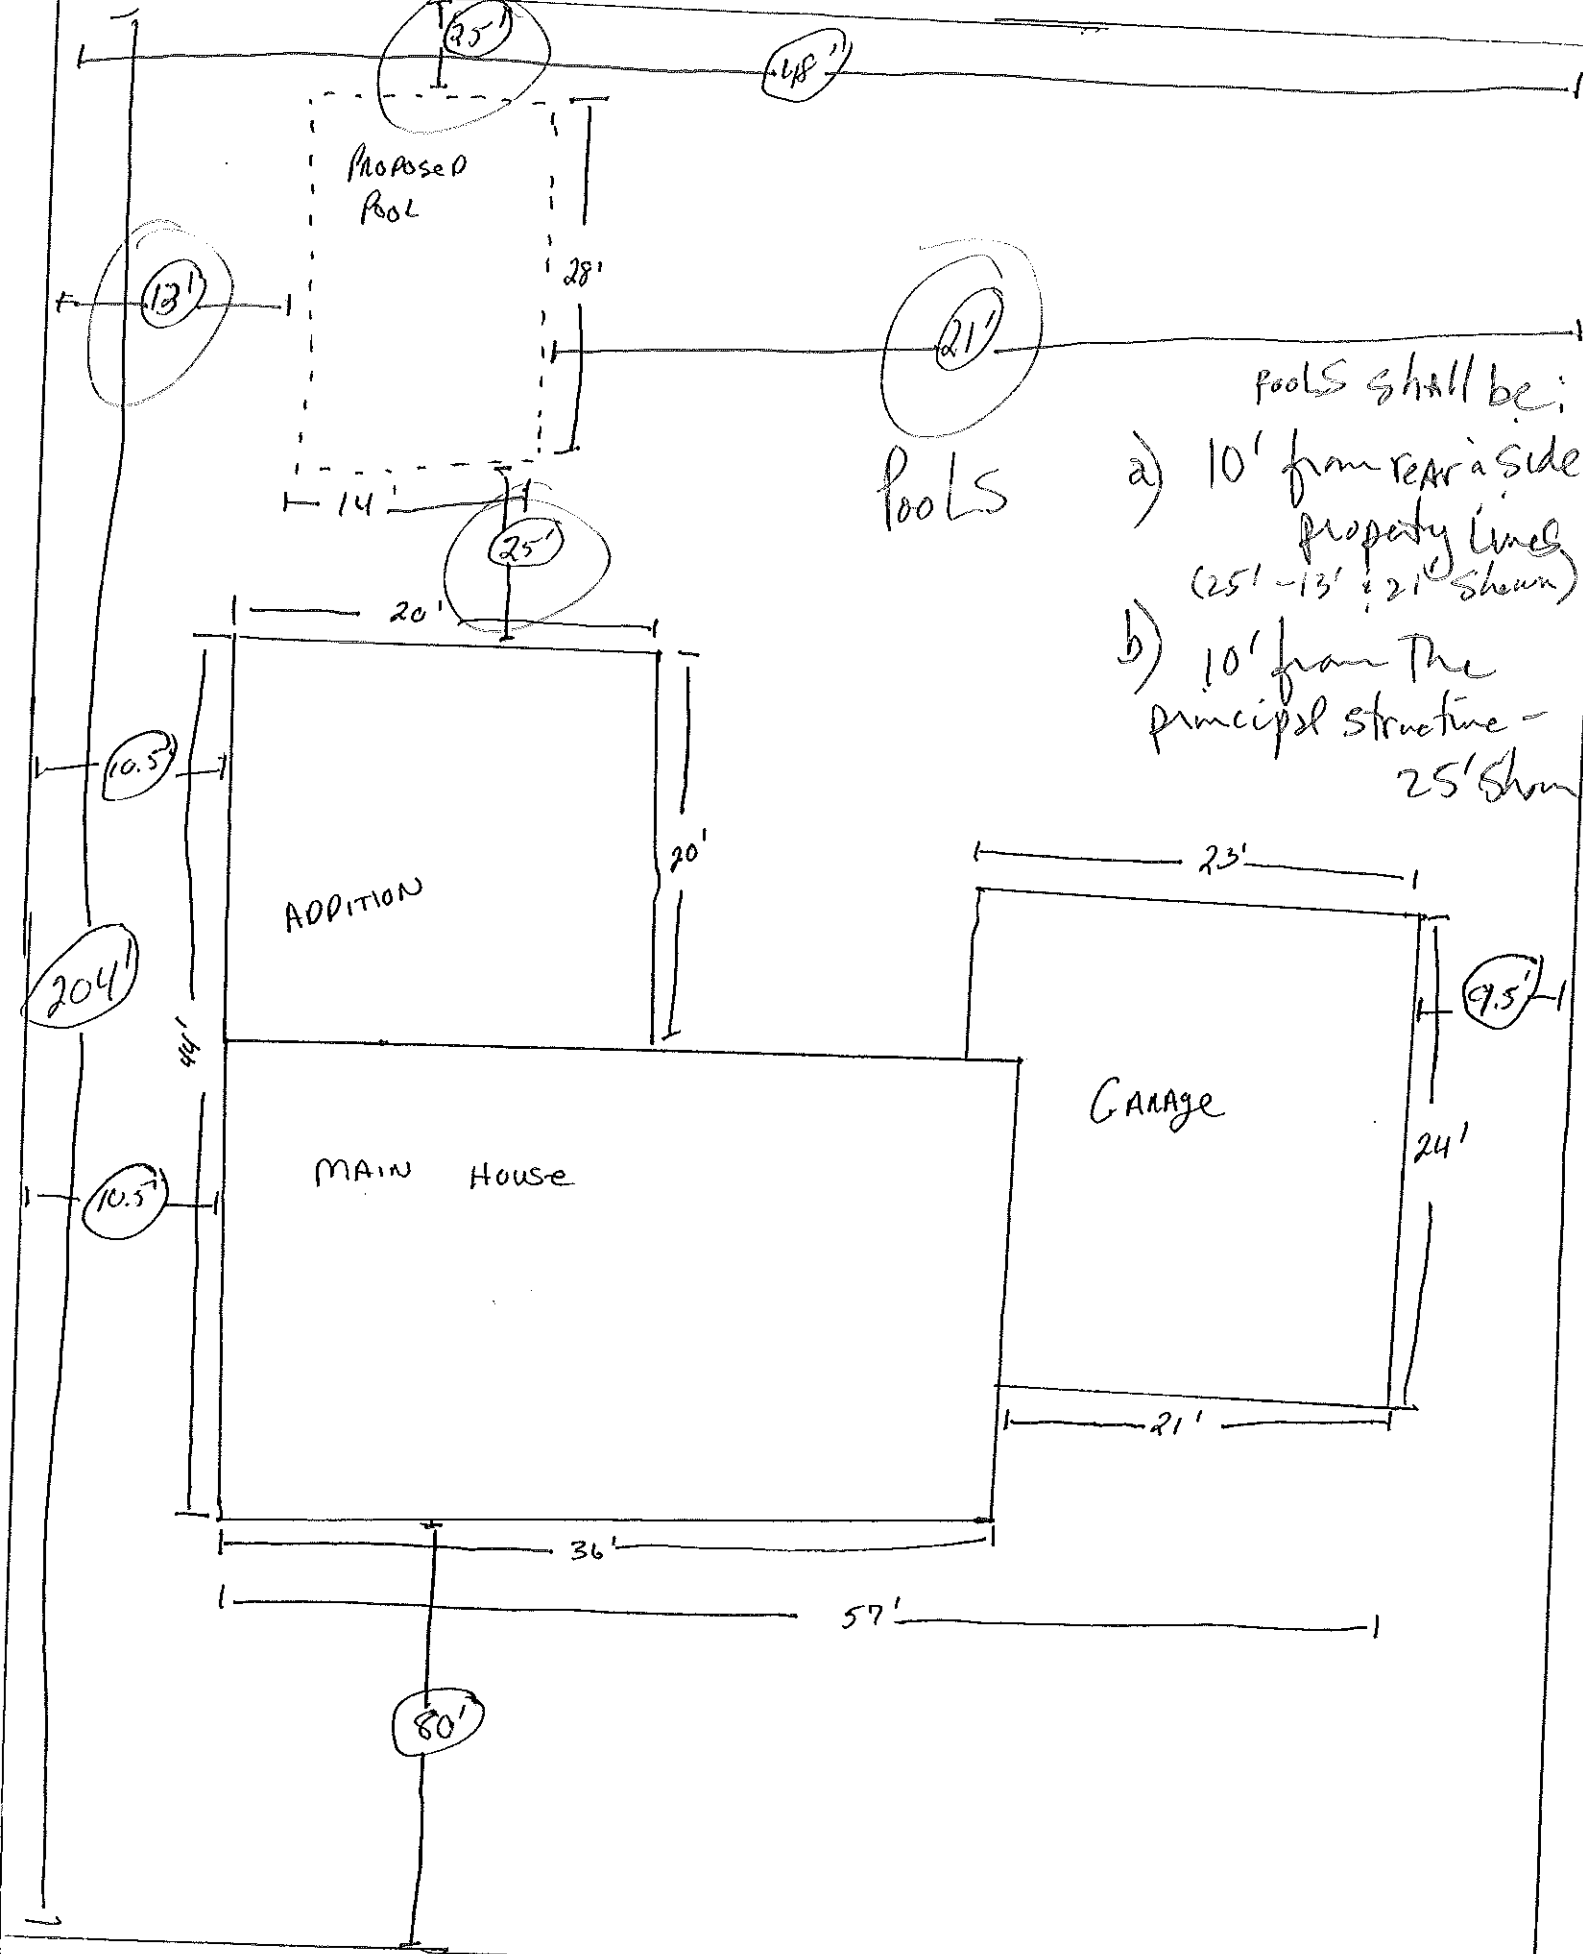 25'
48'
PROPOSED
POOL
28'
13'
21'
POOLS
POOLS shall be:
a) 10' from rear & side
property lines
(25' - 13' & 21' shown)
b) 10' from The
principal structure -
25' Shown
14'
25'
20'
10.5'
20'
ADDITION
23'
9.5'
204'
44'
GARAGE
24'
MAIN HOUSE
10.5'
21'
36'
57'
80'